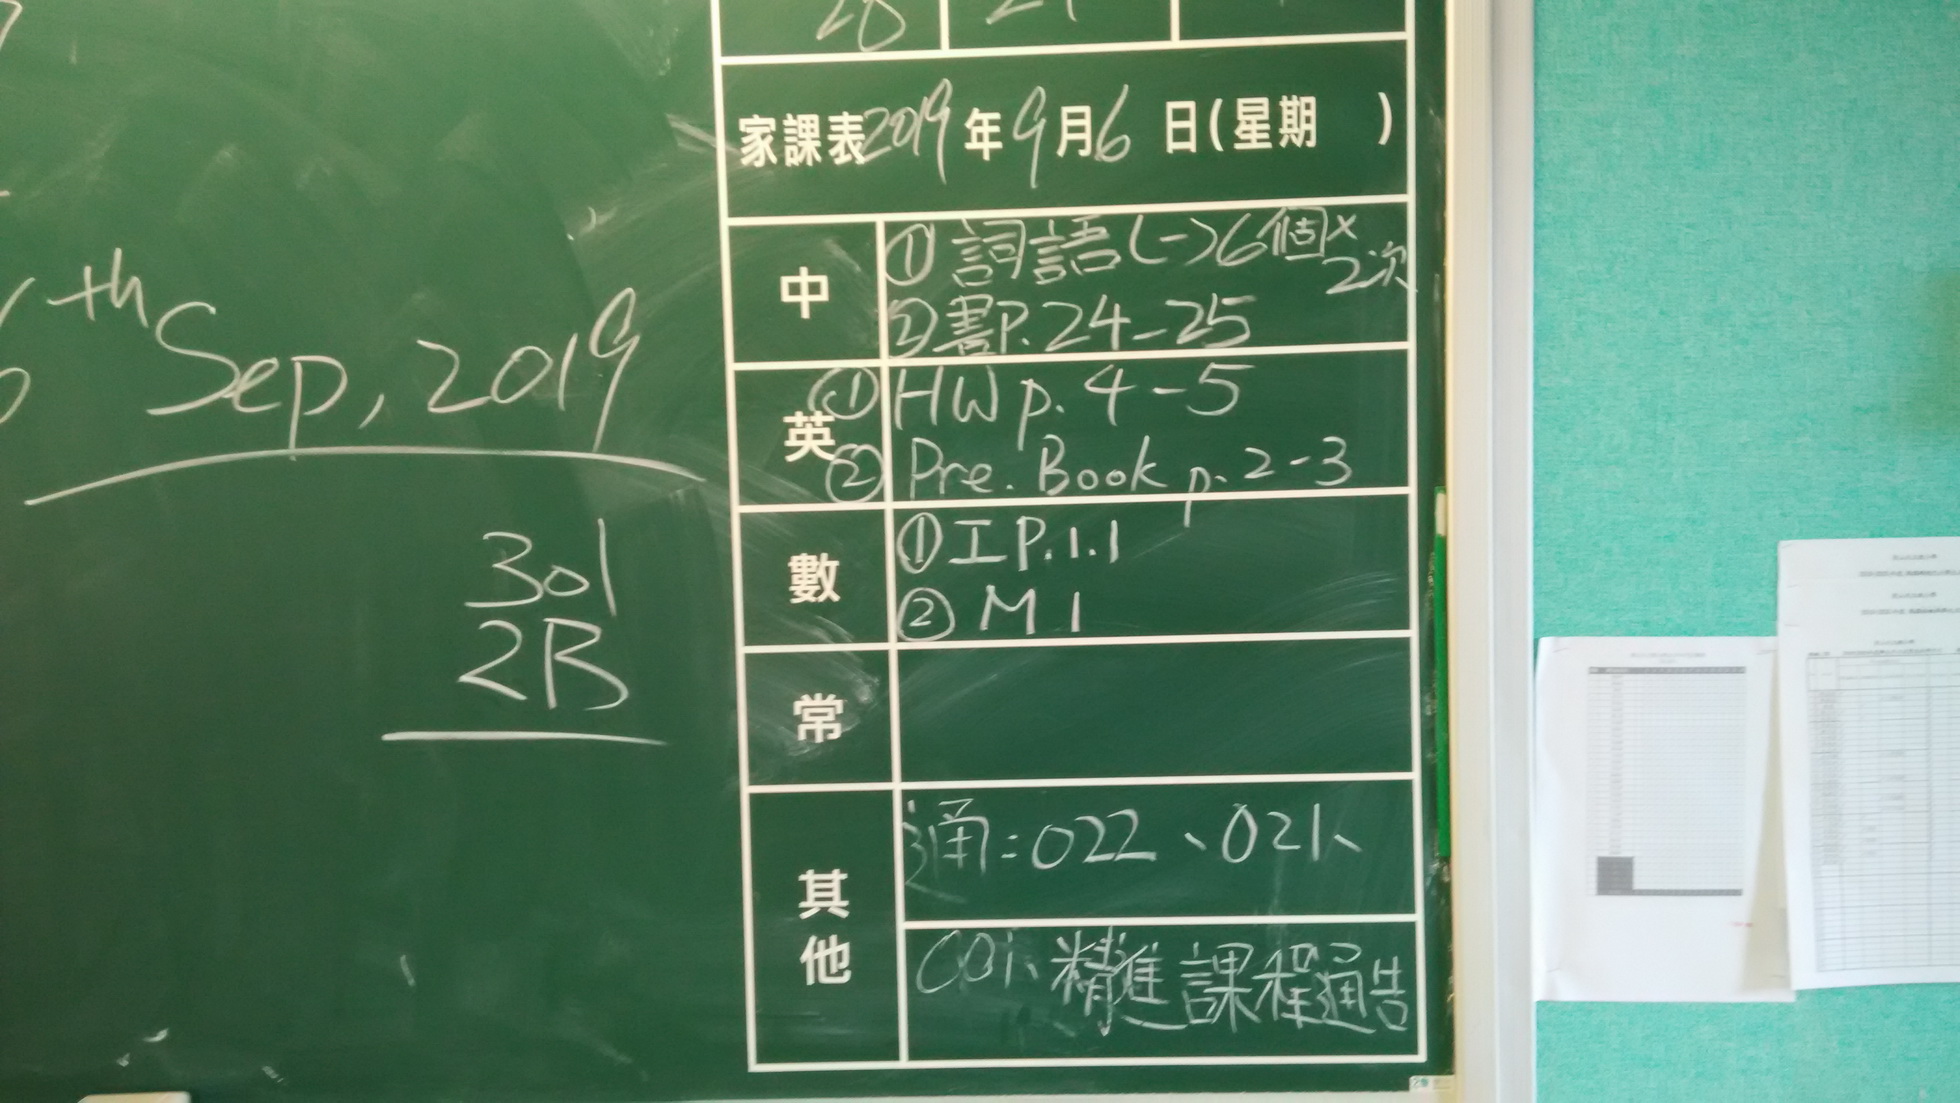 6th Sep, 2019
301
2B
28
家課表2019年9月6日(星期 )
中
① 詞語(一)6個×2次
② 書P.24-25
英
① HW p. 4-5
② Pre. Book p. 2-3
數
① 工P.1.1
② M 1
常
其他
通:022、021、
001、精進課程通告